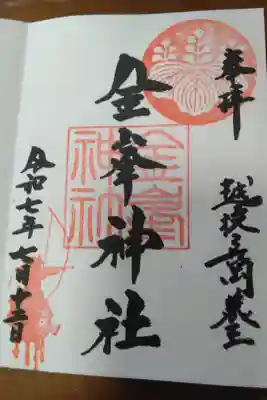 奉拝
越後長岡蔵王
金峯神社
金峯神社
令和七年七月十三日